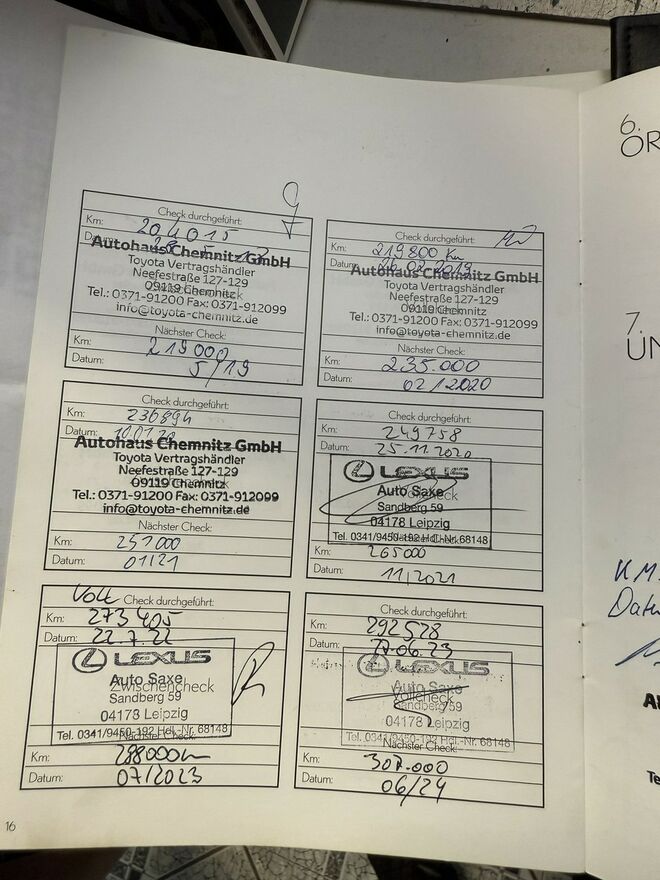 Check durchgeführt:
Km: 204015
Datum:
Autohaus Chemnitz GmbH
Toyota Vertragshändler
Neefestraße 127-129
09119 Chemnitz
Tel.: 0371-91200 Fax: 0371-912099
info@toyota-chemnitz.de
Nächster Check:
Km: 219000
Datum: 5/19
Check durchgeführt:
Km: 219800 Km
Datum:
Autohaus Chemnitz GmbH
Toyota Vertragshändler
Neefestraße 127-129
09119 Chemnitz
Tel.: 0371-91200 Fax: 0371-912099
info@toyota-chemnitz.de
Nächster Check:
Km: 235.000
Datum: 02/2020
Check durchgeführt:
Km: 236894
Datum:
Autohaus Chemnitz GmbH
Toyota Vertragshändler
Neefestraße 127-129
09119 Chemnitz
Tel.: 0371-91200 Fax: 0371-912099
info@toyota-chemnitz.de
Nächster Check:
Km: 251000
Datum: 01/21
Check durchgeführt:
Km: 249758
Datum: 25.11.2020
LEXUS
Auto Saxe
Sandberg 59
04178 Leipzig
Tel. 0341/9450-192 Hdl.-Nr. 68148
Km: 265000
Datum: 11/2021
Voll Check durchgeführt:
Km: 273405
Datum: 22.7.22
LEXUS
Auto Saxe
Zwischencheck
Sandberg 59
04178 Leipzig
Tel. 0341/9450-192 Hdl.-Nr. 68148
Nächster Check:
Km: 288000km
Datum: 07/2023
Check durchgeführt:
Km: 292578
Datum: 06.23
LEXUS
Auto Saxe
Vollcheck
Sandberg 59
04178 Leipzig
Tel. 0341/9450-192 Hdl.-Nr. 68148
Nächster Check:
Km: 307.000
Datum: 06/24
16
6.
7.